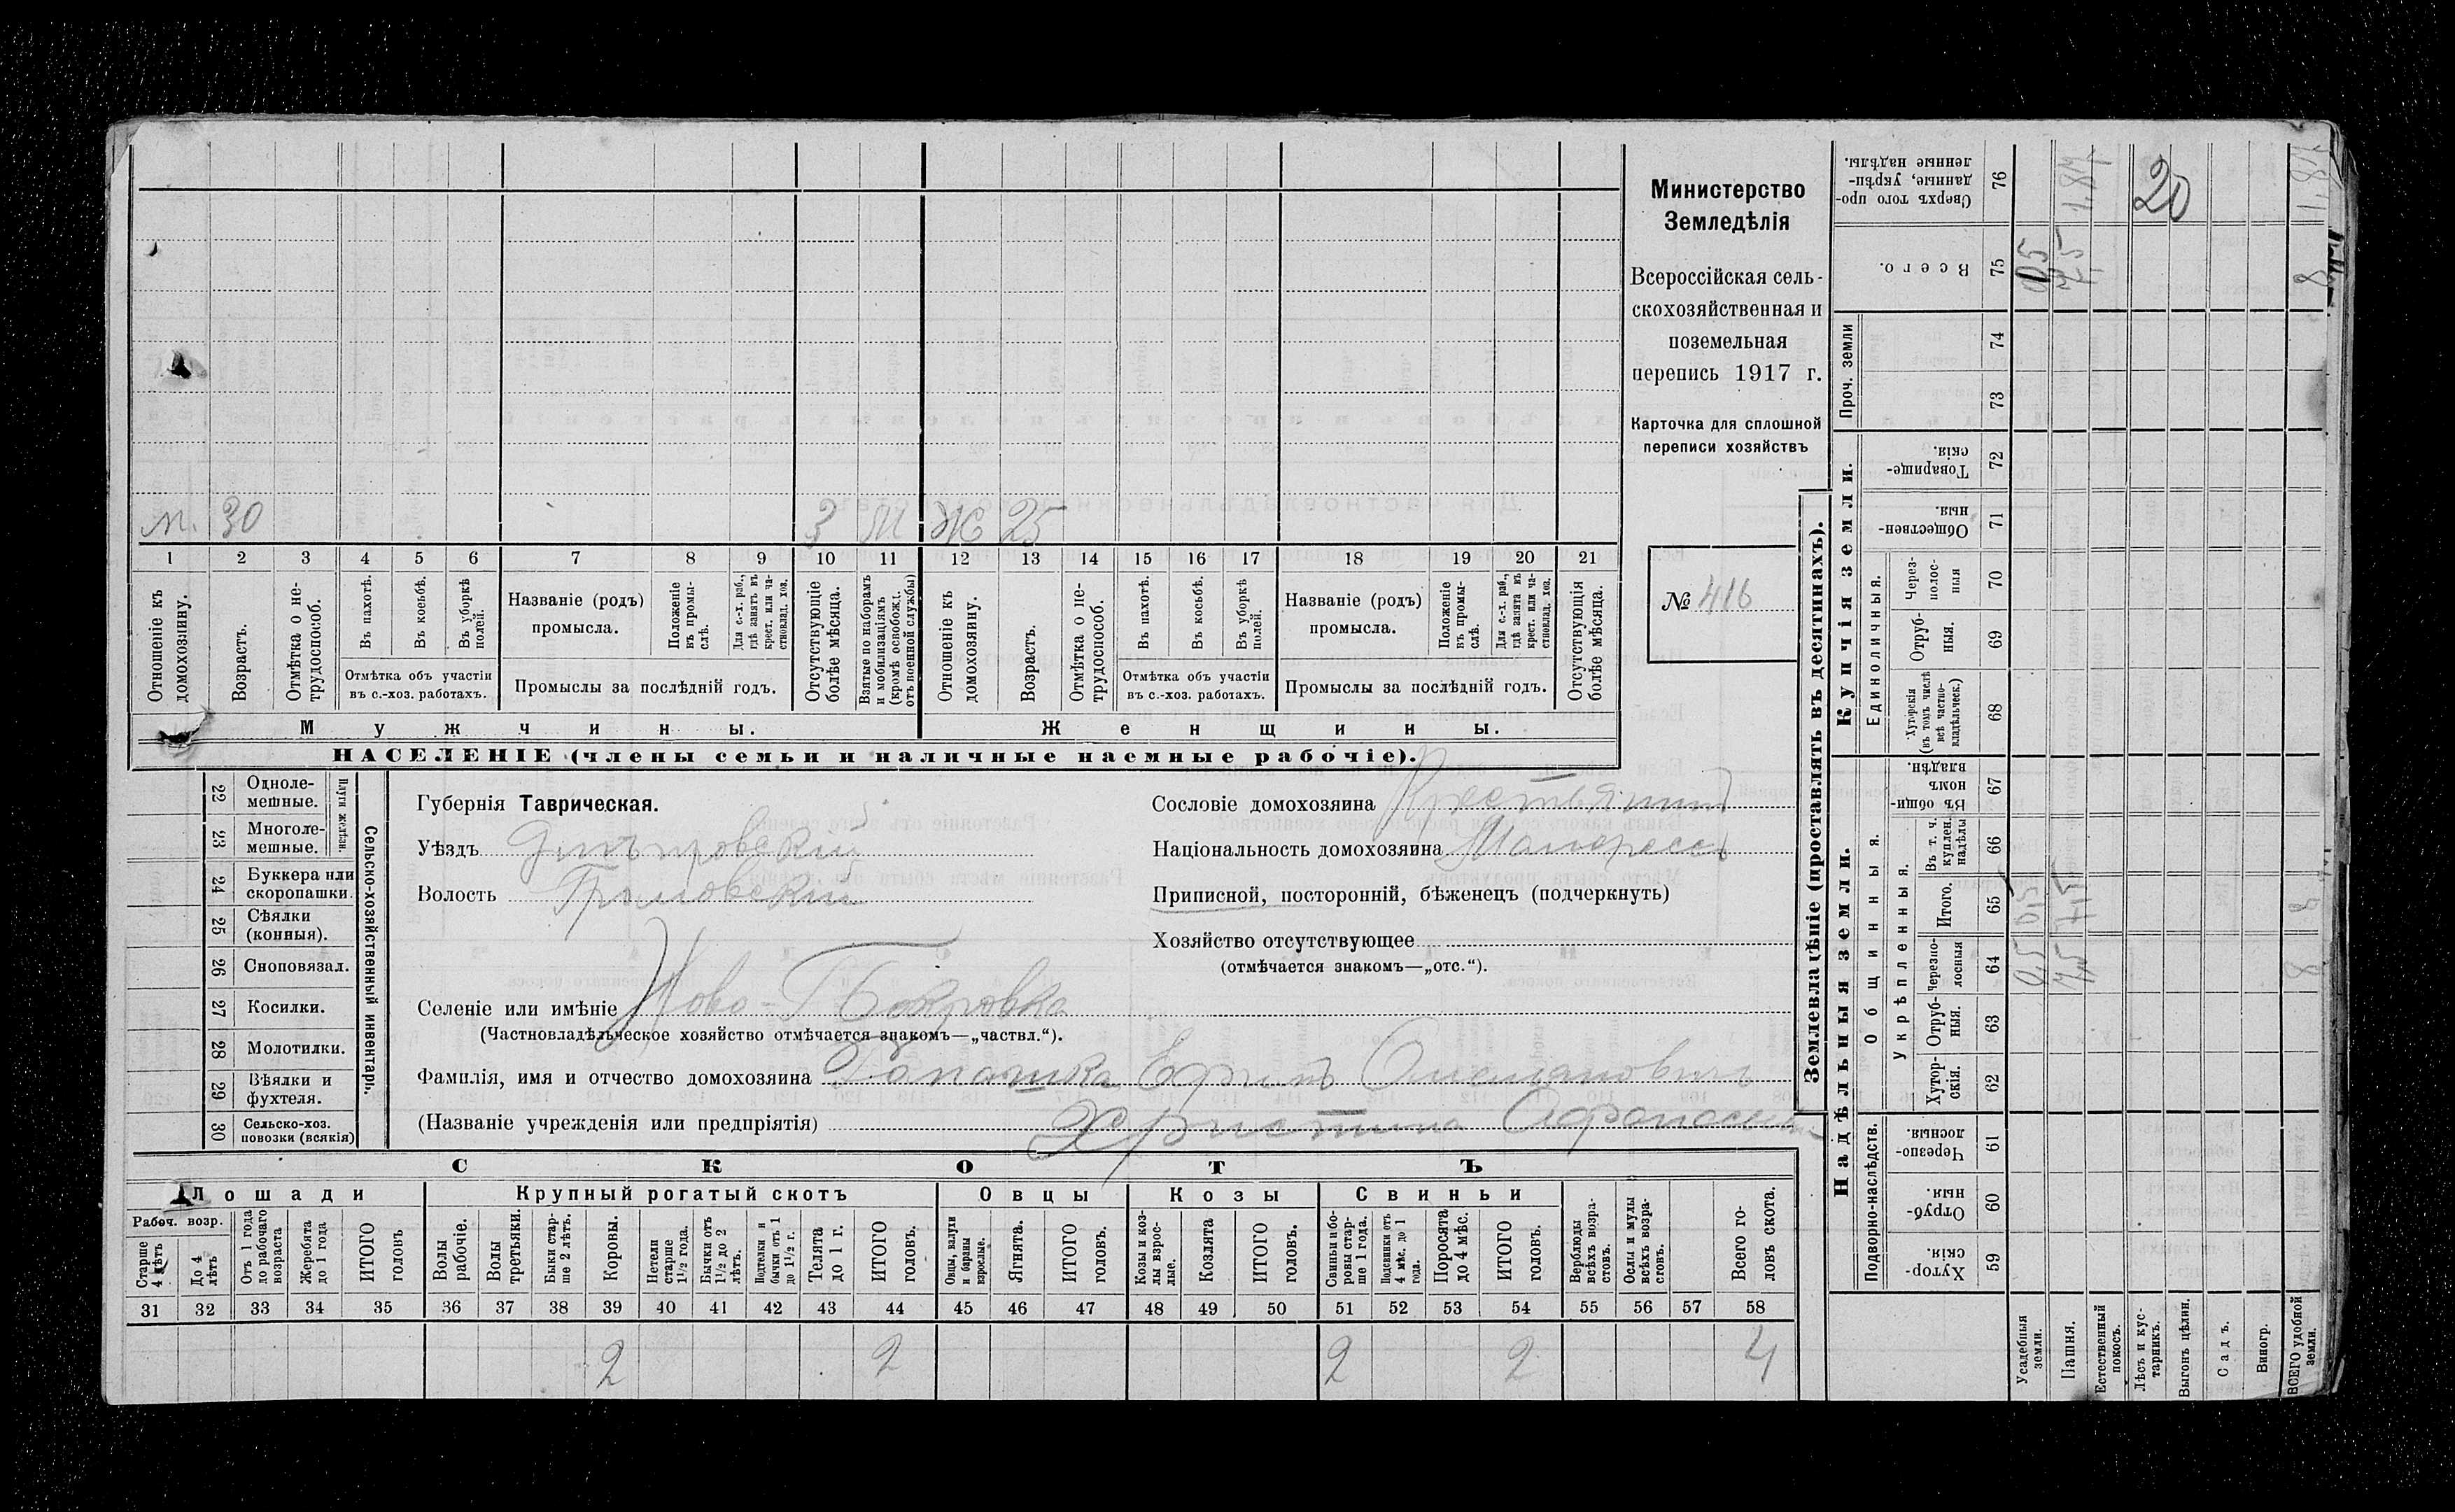 Министерство
Земледѣлія
Всероссійская сель-
скохозяйственная и
поземельная
перепись 1917 г.
Карточка для сплошной
переписи хозяйствъ
№ 416
м. 30 3 М Ж 25
1 2 3 4 5 6 7 8 9 10 11 12 13 14 15 16 17 18 19 20 21
Отношеніе къ домохозяину.
Возрастъ.
Отмѣтка о не-трудоспособ.
Въ пахотѣ.
Въ косьбѣ.
Въ уборкѣ полей.
Отмѣтка объ участіи
въ с.-хоз. работахъ.
Названіе (родъ)
промысла.
Положеніе въ промы-слѣ.
Для с.-х. раб., гдѣ занятъ въ крест. или ча-стновлад. хоз.
Промыслы за послѣдній годъ.
Отсутствующіе болѣе мѣсяца.
Взятые по наборамъ и мобилизаціямъ (кромѣ освобожд. отъ военной службы)
Отношеніе къ домохозяину.
Возрастъ.
Отмѣтка о не-трудоспособ.
Въ пахотѣ.
Въ косьбѣ.
Въ уборкѣ полей.
Отмѣтка объ участіи
въ с.-хоз. работахъ.
Названіе (родъ)
промысла.
Положеніе въ промы-слѣ.
Для с.-х. раб., гдѣ занята въ крест. или ча-стновлад. хоз.
Промыслы за послѣдній годъ.
Отсутствующія болѣе мѣсяца.
Мужчины.
Женщины.
НАСЕЛЕНІЕ (члены семьи и наличные наемные рабочіе).
22 Одноле-мешные.
23 Многоле-мешные.
Плуги желѣзн.
24 Буккера или скоропашки.
25 Сѣялки (конныя).
26 Сноповязал.
27 Косилки.
28 Молотилки.
29 Вѣялки и фухтеля.
30 Сельско-хоз. повозки (всякія)
Сельско-хозяйственный инвентарь.
Губернія Таврическая.
Уѣздъ Днѣпровскій
Волость
Селеніе или имѣніе Ново-Покровка
(Частновладѣльческое хозяйство отмѣчается знакомъ—„частвл.“).
Фамилія, имя и отчество домохозяина Ефимъ
(Названіе учрежденія или предпріятія) Христина
Сословіе домохозяина Крестьянинъ
Національность домохозяина Малоросъ
Приписной, посторонній, бѣженецъ (подчеркнуть)
Хозяйство отсутствующее
(отмѣчается знакомъ—„отс.“).
СКОТЪ
Лошади
Рабоч. возр.
Старше 4 лѣтъ
До 4 лѣтъ
Отъ 1 года до рабочаго возраста
Жеребята до 1 года
ИТОГО головъ
Крупный рогатый скотъ
Волы рабочіе.
Волы третьяки.
Быки стар-ше 2 лѣтъ.
Коровы.
Нетели старше 1½ года.
Бычки отъ 1½ до 2 лѣтъ.
Подтелки и бычки отъ 1 до 1½ г.
Телята до 1 г.
ИТОГО головъ.
Овцы
Овцы, валухи и бараны взрослые.
Ягнята.
ИТОГО головъ.
Козы
Козы и коз-лы взрос-лые.
Козлята
ИТОГО головъ.
Свиньи
Свиньи и бо-ровы стар-ше 1 года.
Подсвинки отъ 4 мѣс. до 1 года.
Поросята до 4 мѣс.
ИТОГО головъ.
Верблюды всѣхъ возра-стовъ.
Ослы и мулы всѣхъ возра-стовъ.
Всего го-ловъ скота.
31 32 33 34 35 36 37 38 39 40 41 42 43 44 45 46 47 48 49 50 51 52 53 54 55 56 57 58
2 2 2 2 4
Землевладѣніе (проставлять въ десятинахъ).
Надѣльныя земли.
Купчія земли.
Проч. земли
Подворно-наслѣдств.
Общинныя.
Укрѣпленныя.
Единоличныя.
Сверхъ того про-данные, укрѣп-ленные надѣлы. 76
Всего. 75
74
73
Товарище-скія. 72
Обществен-ныя. 71
Через-полос-ныя 70
Отруб-ныя. 69
Хуторскія (въ томъ числѣ всѣ частно-владѣльческ.) 68
Въ общи-номъ владѣн. 67
Въ т. ч. куплен. надѣлы 66
Итого. 65
Черезпо-лосныя 64
Отруб-ныя. 63
Хутор-скія. 62
Черезпо-лосныя. 61
Отруб-ныя. 60
Хутор-скія 59
Усадебныя земли. 0,5 0,5 0,5
Пашня. 7,5 7,5 7,5 1,84
Естественный покосъ.
Лѣсъ и кус-тарникъ.
Выгонъ цѣлин.
Садъ.
Виногр.
ВСЕГО удобной земли. 8 8 8
20